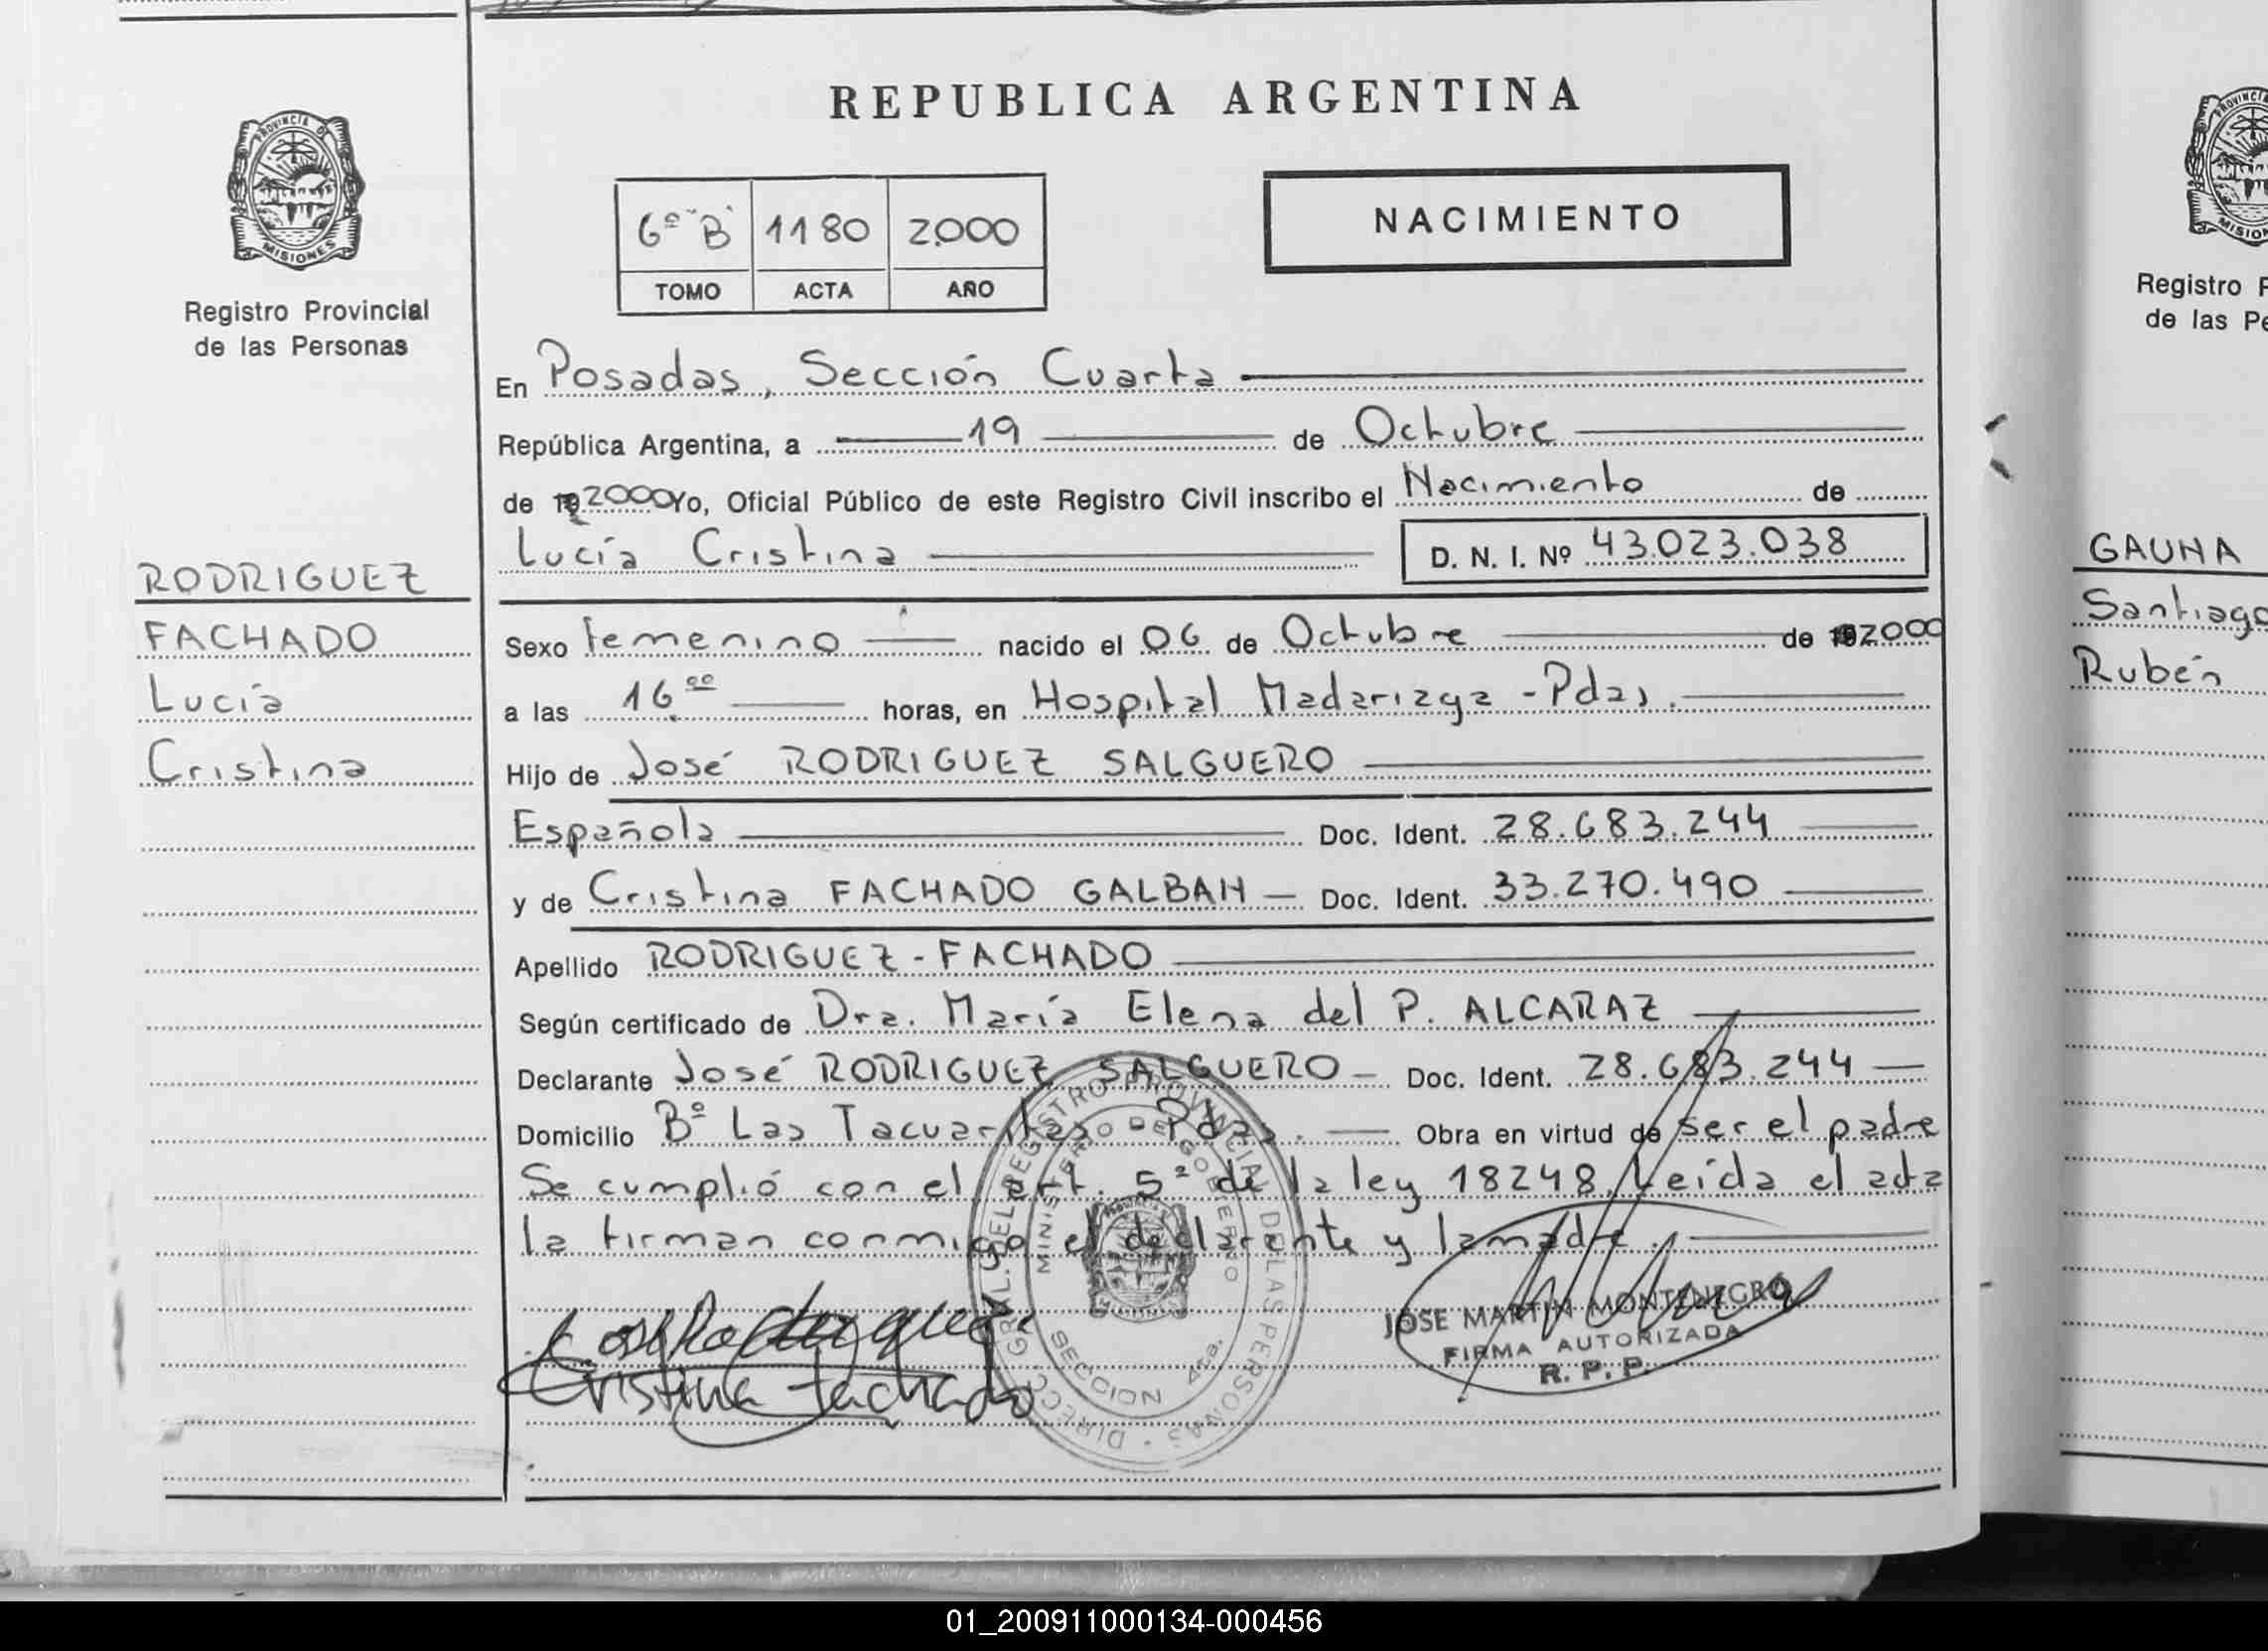 REPUBLICA ARGENTINA
PROVINCIA DE
MISIONES
Registro Provincial
de las Personas
6º "B" 1180 2000
TOMO ACTA AÑO
NACIMIENTO
En Posadas, Sección Cuarta
República Argentina, a 19 de Octubre
de 19 2000 Yo, Oficial Público de este Registro Civil inscribo el Nacimiento de
Lucía Cristina D. N. I. Nº 43.023.038
RODRIGUEZ
FACHADO
Lucía
Cristina
Sexo femenino nacido el 06 de Octubre de 2000
a las 16.00 horas, en Hospital Madariaga - Pdas.
Hijo de José RODRIGUEZ SALGUERO
Española Doc. Ident. 28.683.244
y de Cristina FACHADO GALBAN — Doc. Ident. 33.270.490
Apellido RODRIGUEZ - FACHADO
Según certificado de Dra. María Elena del P. ALCARAZ
Declarante José RODRIGUEZ SALGUERO — Doc. Ident. 28.683.244 —
Domicilio Bº Las Tacuaritas Pdas. — Obra en virtud de ser el padre
Se cumplió con el art. 5º de la ley 18248. Leída el acta
la firman conmigo el declarante y la madre.
José Rodriguez
Cristina Fachado
DIRECC. GRAL. DEL REGISTRO PROVINCIAL DE LAS PERSONAS
MINISTERIO DE GOBIERNO
SECCION 4ta.
JOSE MARTIN MONTENEGRO
FIRMA AUTORIZADA
R. P. P.
Registro
de las
GAUNA
Santiago
Rubén
01_200911000134-000456